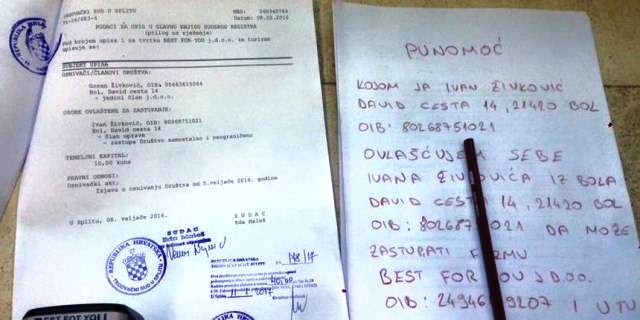 TRGOVAČKI SUD U SPLITU
MBS: 060342784
Tt-16/683-4
Datum: 08.02.2016
PODACI ZA UPIS U GLAVNU KNJIGU SUDSKOG REGISTRA
(prilog uz rješenje)
Pod brojem upisa 1 za tvrtku BEST FOR YOU j.d.o.o. za turizam
upisuje se:
SUBJEKT UPISA
OSNIVAČI/ČLANOVI DRUŠTVA:
Goran Živković, OIB:
Bol, David cesta 14
- jedini član j.d.o.o.
OSOBE OVLAŠTENE ZA ZASTUPANJE:
Ivan Živković, OIB: 80268751021
Bol, David cesta 14
- član uprave
- zastupa Društvo samostalno i neograničeno
TEMELJNI KAPITAL:
10,00 kuna
PRAVNI ODNOSI:
Osnivački akt:
Izjava o osnivanju Društva od 5.veljače 2016. godine
U Splitu, 08. veljače 2016.
SUDAC
Eda Maleš
SUDAC
Eda Maleš
REPUBLIKA HRVATSKA
REPUBLIKA HRVATSKA
BEST FOR YOU
PUNOMOĆ
KOJOM JA IVAN ŽIVKOVIĆ
DAVID CESTA 14, 21420 BOL
OIB: 80268751021
OVLAŠĆUJEM SEBE
IVANA ŽIVKOVIĆA IZ BOLA
DAVID CESTA 14, 21420 BOL
OIB: 8026875 1021 DA MOŽE
ZASTUPATI FIRMU
BEST FOR YOU J.D.O.O.
OIB: 24946 9207 I U TU